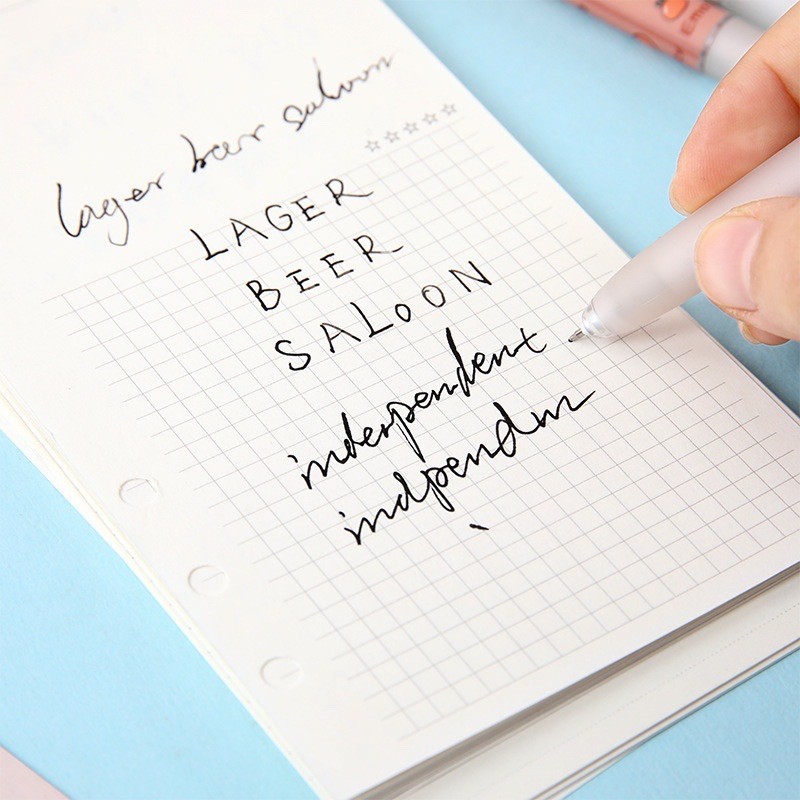 lager beer saloon
LAGER
BEER
SALOON
independent
indpendn